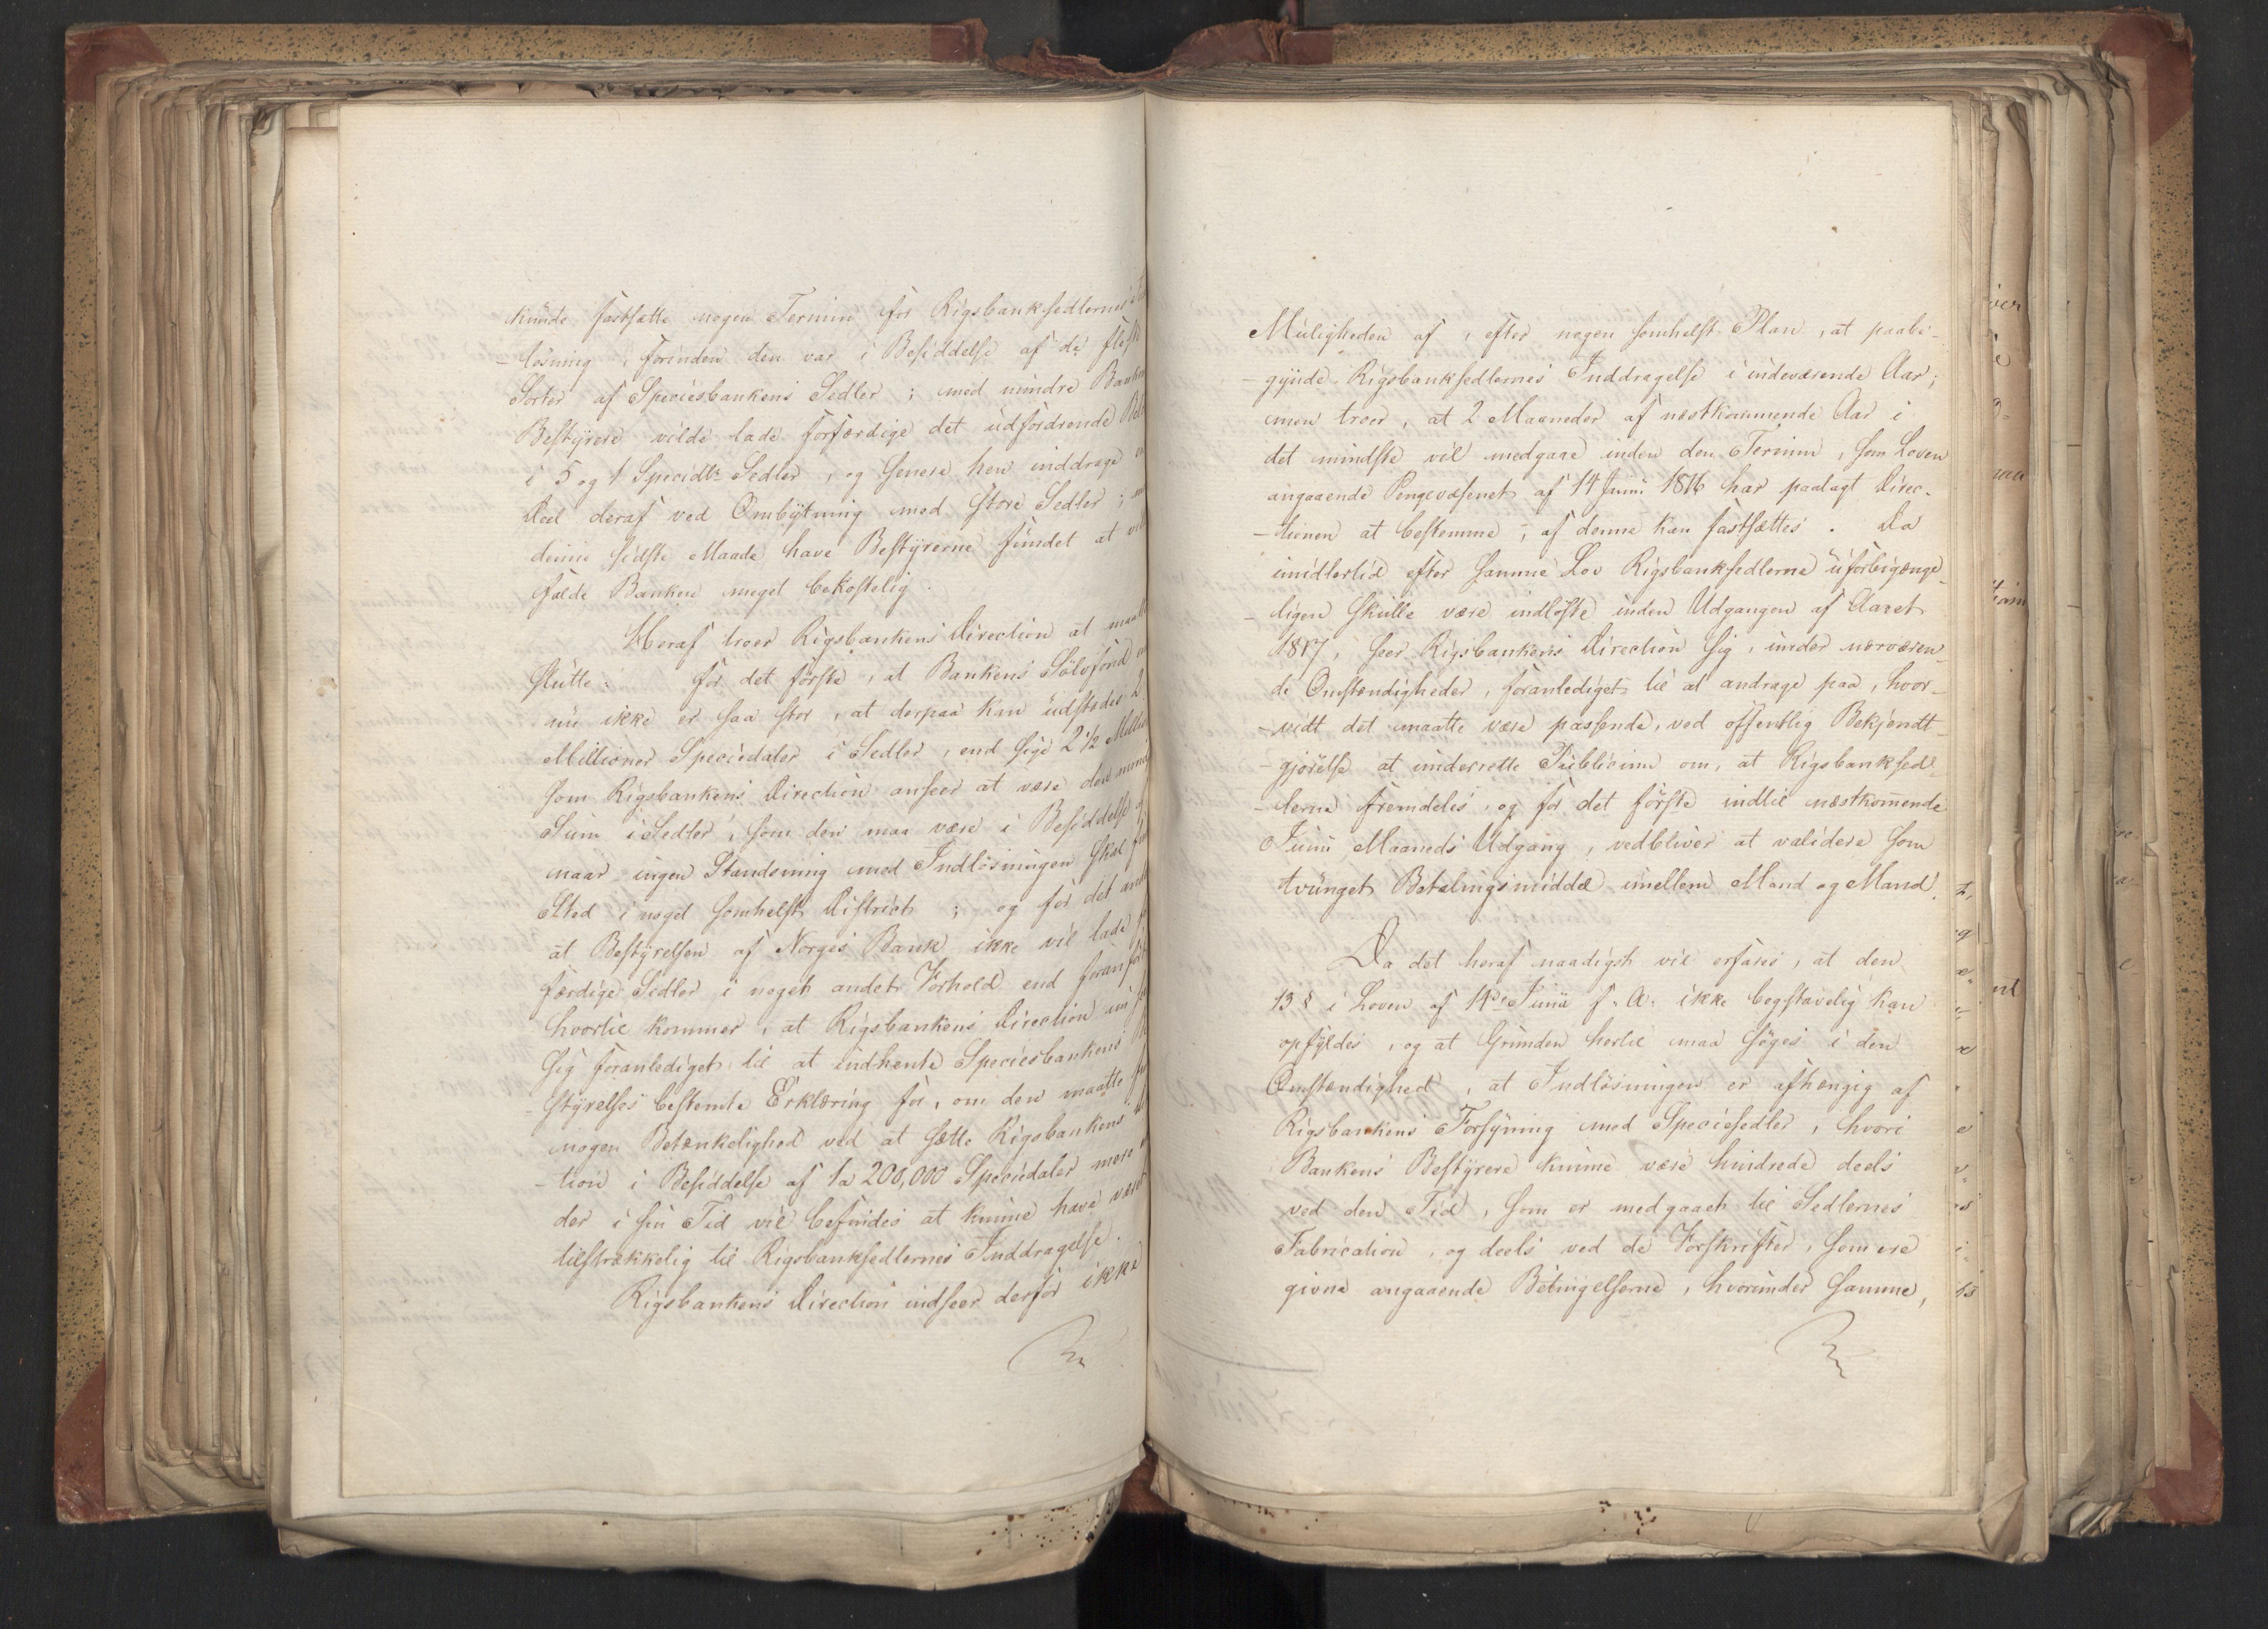 kunde fastsætte nogen Termin for Rigsbanksedlernes
-lösning, forinden den var i Besiddelse af de fleste
Sorter af Speciesbankens Sedler; med mindre Bankens
Bestyrere vilde lade forfærdige det udfordrende
i 5 og 1 Specidlr Sedler, og senere hen inddrage
Deel deraf ved Ombytning med store Sedler;
denne sidste Maade have Bestyrerne fundet at
falde Banken meget bekostelig.
Heraf troer Rigsbankens Direction at maatte
slutte: for det förste, at Bankens Sölvfond
nu ikke er saa stor, at derpaa kan udstedes 2
Millioner Speciedaler i Sedler, end sige 2 1/2
som Rigsbankens Direction anseer at være den
Sum i Sedler, som den maa være i Besiddelse
naar ingen Standsning med Indlösningen skal
Sted i noget somhelst District; og for det
at Bestyrelsen af Norges Bank ikke vil lade
færdige Sedler i noget andet Forhold end
hvortil kommer, at Rigsbankens Direction
sig foranlediget til at indhente Speciesbankens
-styrelses bestemte Erklæring for, om den maatte
nogen Betænkelighed ved at sætte Rigsbankens
-tion i Besiddelse af 1 a 200,000 Speciedaler mere
der i sin Tid vil befindes at kunne have været
tilstrækkelig til Rigsbanksedlernes Inddragelse.
Rigsbankens Direction indseer derfor ikke
Muligheden af, efter nogen somhelst Plan, at paabe-
-gynde Rigsbanksedlernes Inddragelse i indeværende Aar;
men troer, at 2 Maaneder af næstkommende Aar i
det mindste vil medgaae inden den Termin, som Loven
angaaende Pengevæsenet af 14 Juni 1816 har paalagt Direc-
-tionen at bestemme, af denne kan fastsættes. Da
imidlertid efter samme Lov Rigsbanksedlerne uforbigænge-
-ligen skulle være indlöste inden Udgangen af Aaret
1817, seer Rigsbankens Direction sig, under nærværen-
de Omstændigheder, foranlediget til at andrage paa, hvor-
-vidt det maatte være passende, ved offentlig Bekjendt-
-gjörelse at underrette Publicum om, at Rigsbanksed-
-lerne fremdeles, og for det förste indtil næstkommende
Juni Maaneds Udgang, vedbliver at validere som
tvunget Betalingsmiddel imellem Mand og Mand.
Da det heraf naadigst vil erfares, at den
13 § i Loven af 14de Juni f. A. ikke bogstavelig kan
opfyldes, og at Grunden hertil maa söges i den
Omstændighed, at Indlösningen er afhængig af
Rigsbankens Forsyning med Speciesedler, hvori
Bankens Bestyrere kunne være hindrede deels
ved den Tid, som er medgaaet til Sedlernes
Fabrication, og deels ved de Forskrifter, som ere
givne angaaende Betingelserne, hvorunder samme,